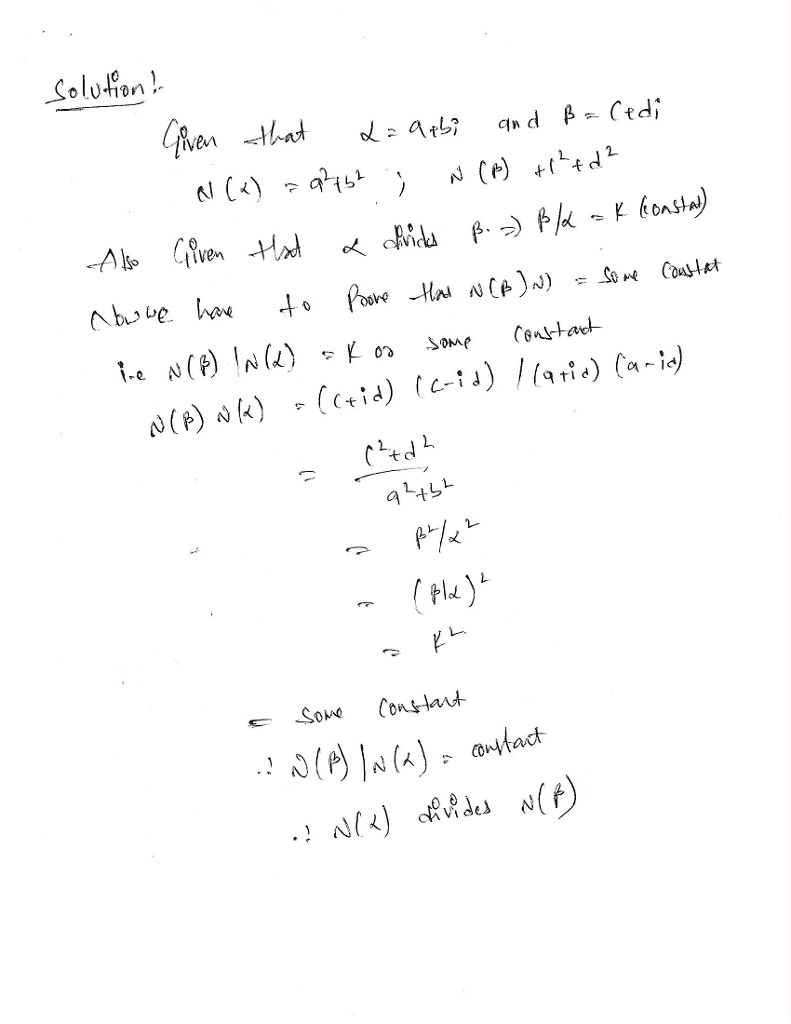 Solution:-
Given that α = a+bi and β = c+di
N(α) = a²+b² ; N(β) + c²+d²
Also Given that α divides β. ⇒ β/α = K (constat)
Now we have to Prove that N(β) N) = some constat
i.e N(β) | N(α) = K or some constant
N(β) N(α) = (c+id) (c-id) / (a+id) (a-id)
= c²+d² / a²+b²
= β²/α²
= (β/α)²
= K²
= some constant
∴ N(β) | N(α) = constant
∴ N(α) divides N(β)